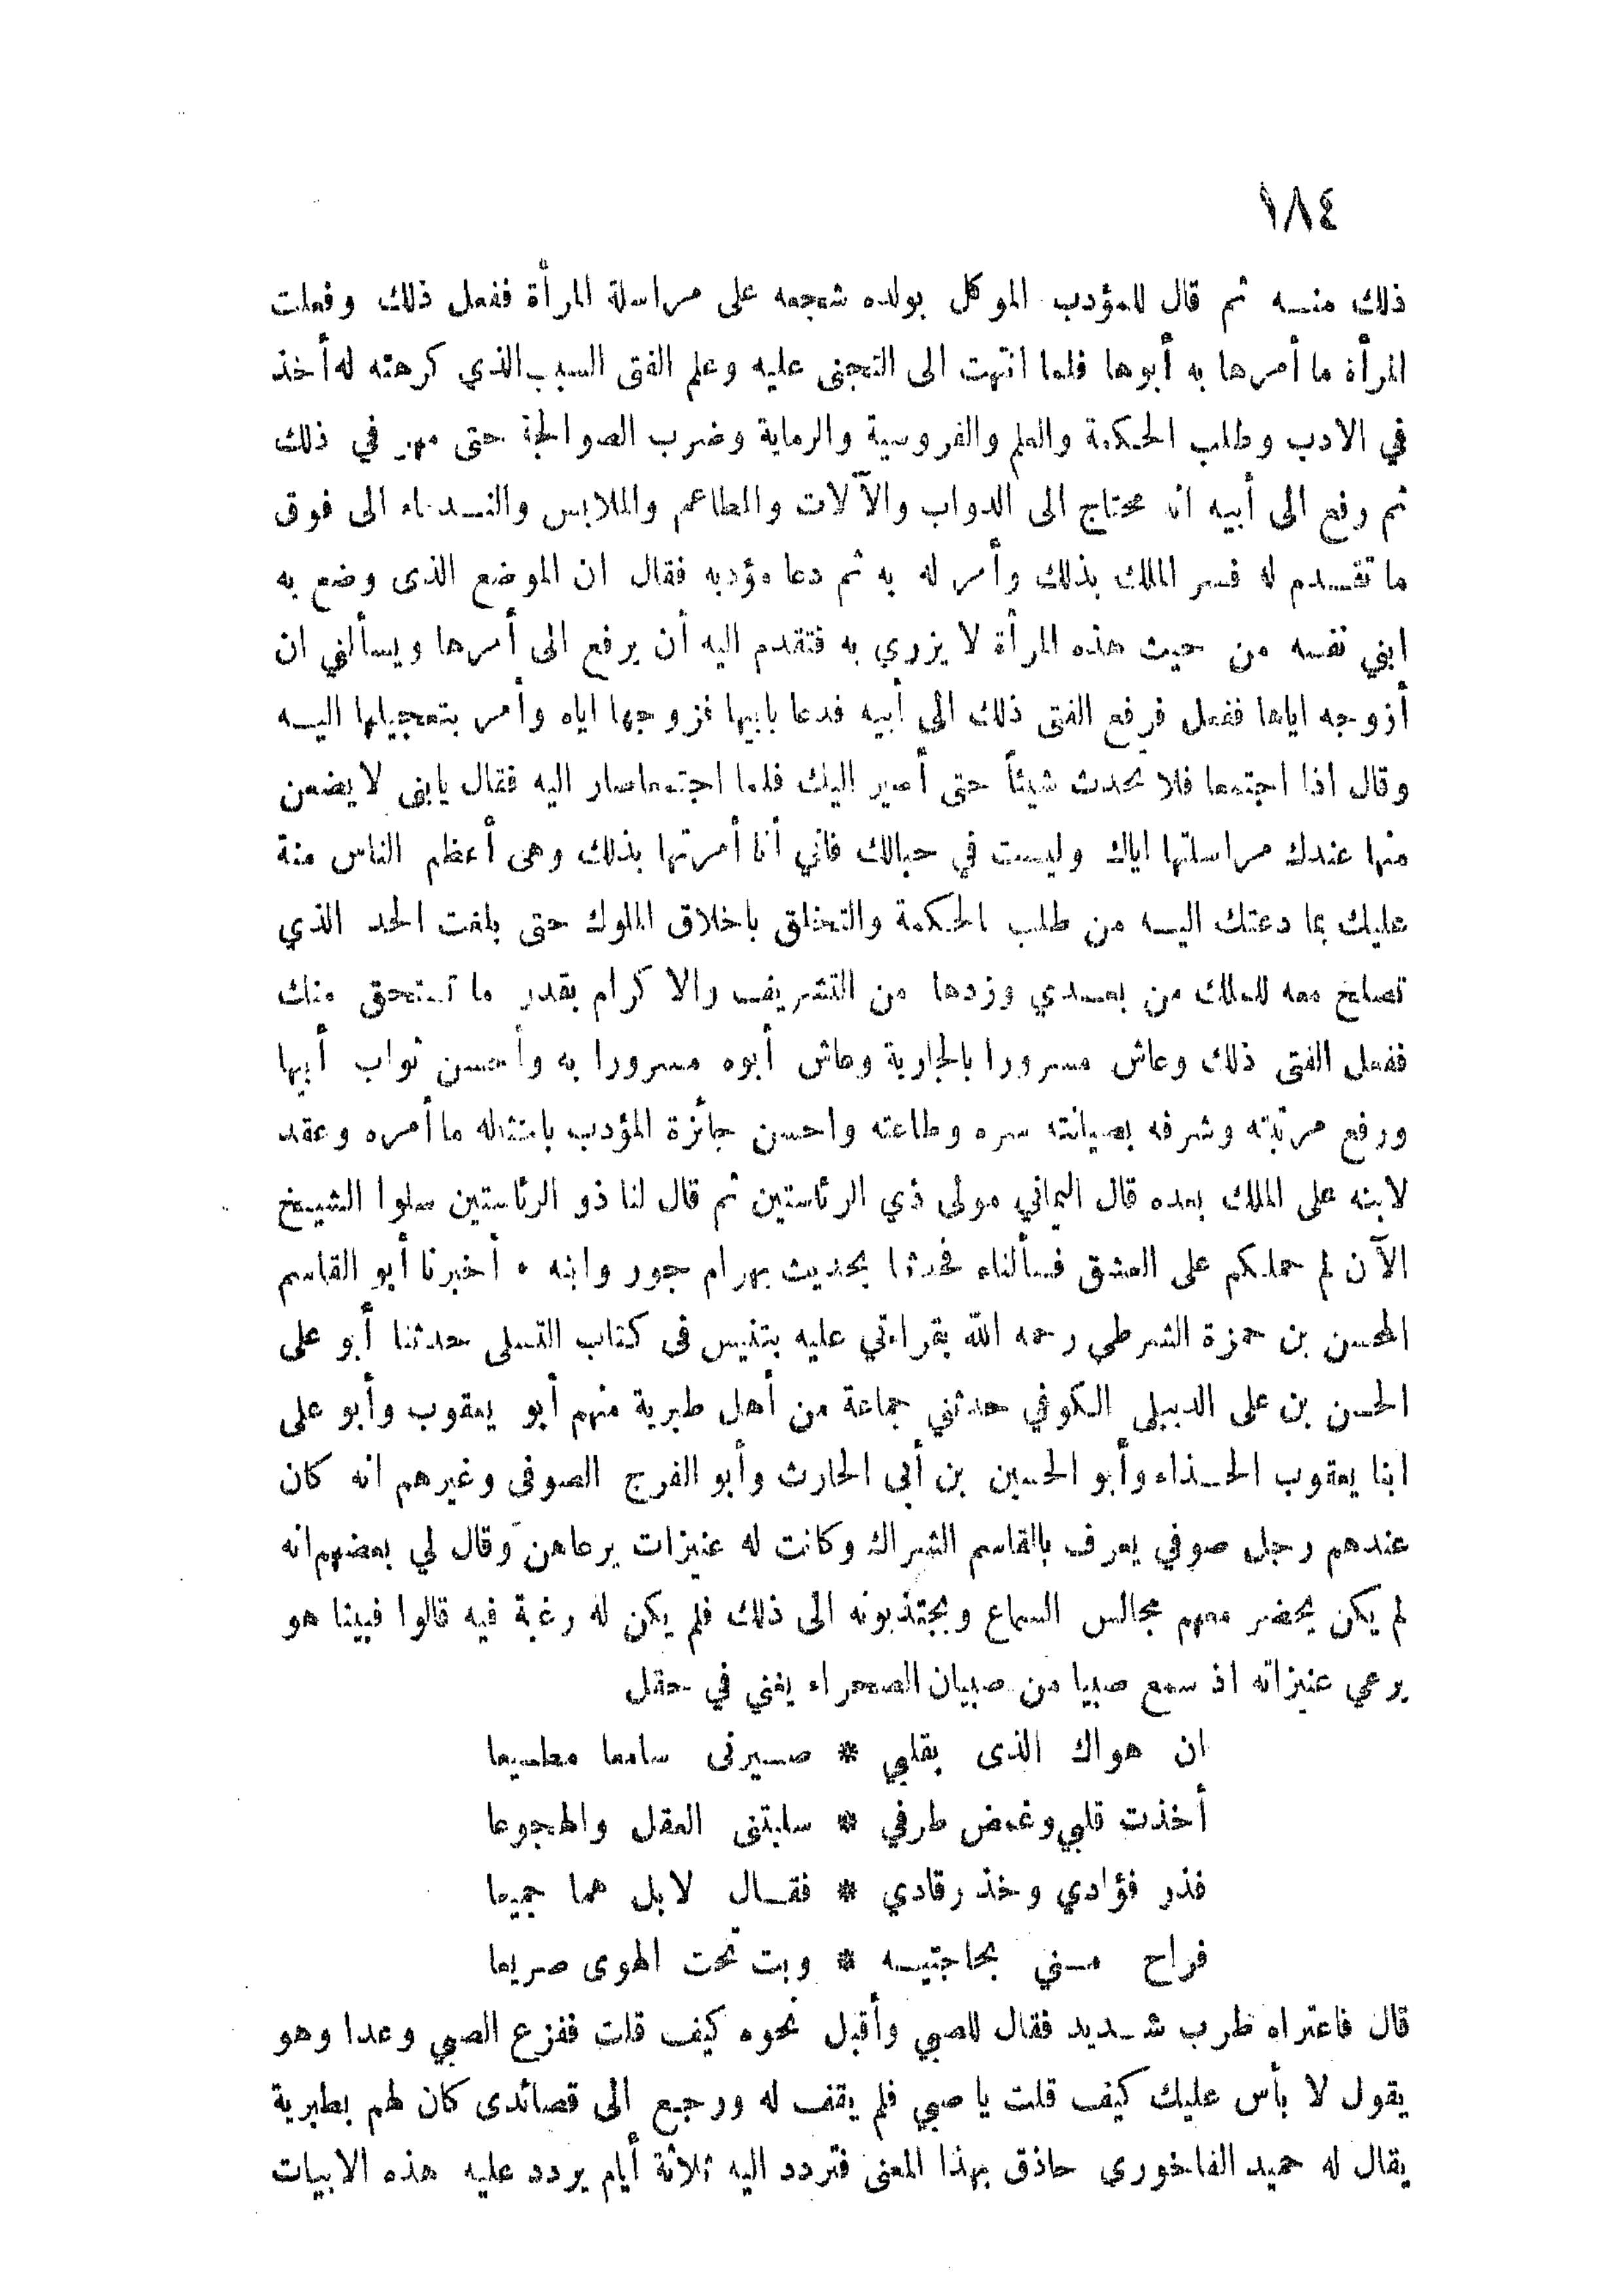 ١٨٤
ذلك منه ثم قال للمؤدب الموكل بولده شجعه على مراسلة المرأة ففعل ذلك وفعلت
المرأة ما أمرها به أبوها فلما انتهت الى التجنى عليه وعلم الفتى السبب الذي كرهته له أخذ
في الادب وطلب الحكمة والعلم والفروسية والرماية وضرب الصوالجة حتى مهر في ذلك
ثم رفع الى أبيه انه محتاج الى الدواب والآلات والمطاعم والملابس والندماء الى فوق
ما تقدم له فسر الملك بذلك وأمر له به ثم دعا مؤدبه فقال ان الموضع الذى وضع به
ابني نفسه من حيث هذه المرأة لا يزري به فتقدم اليه أن يرفع الى أمرها ويسألني ان
أزوجه اياها ففعل فرفع الفتى ذلك الى أبيه فدعا بابيها فزوجها اياه وأمر بتعجيلها اليه
وقال اذا اجتمعا فلا تحدث شيئاً حتى أصير اليك فلما اجتمعا صار اليه فقال يابنى لا يضعن
منها عندك مراسلتها اياك وليست في حبالك فاني أنا أمرتها بذلك وهى أعظم الناس منة
عليك بما دعتك اليه من طلب الحكمة والتخلق باخلاق الملوك حتى بلغت الحد الذي
تصلح معه للملك من بعدي وزدها من التشريف والاكرام بقدر ما تستحق منك
ففعل الفتى ذلك وعاش مسرورا بالجارية وعاش أبوه مسرورا به وأحسن ثواب أبيها
ورفع مرتبته وشرفه بصيانته سره وطاعته واحسن جائزة المؤدب بامتثاله ما أمره وعقد
لابنه على الملك بعده قال اليماني مولى ذي الرئاستين ثم قال لنا ذو الرئاستين سلوا الشيخ
الآن لم حملكم على العشق فسألناه فحدثنا بحديث بهرام جور وابنه • أخبرنا أبو القاسم
المحسن بن حمزة الشرطي رحمه الله بقراءتي عليه بتنيس فى كتاب التسلى حدثنا أبو على
الحسن بن على الدبيلى الكوفي حدثني جماعة من أهل طبرية منهم أبو يعقوب وأبو على
ابنا يعقوب الحذاء وأبو الحسين بن أبى الحارث وأبو الفرج الصوفى وغيرهم انه كان
عندهم رجل صوفي يعرف بالقاسم الشراك وكانت له عنيزات يرعاهن وقال لي بعضهم انه
لم يكن يحضر معهم مجالس السماع ويجتذبونه الى ذلك فلم يكن له رغبة فيه قالوا فبينا هو
يرعي عنيزاته اذ سمع صبيا من صبيان الصحراء يغني في حقل
ان هواك الذى بقلبي * صيرنى سامعا مطيعا
أخذت قلبي وغمض طرفي * سلبتنى العقل والهجوعا
فذر فؤادي وخذ رقادي * فقال لا بل هما جميعا
فراح مني بحاجتيه * وبت تحت الهوى صريعا
قال فاعتراه طرب شديد فقال للصبي وأقبل نحوه كيف قلت ففزع الصبي وعدا وهو
يقول لا بأس عليك كيف قلت يا صبي فلم يقف له ورجع الى قصائدى كان لهم بطبرية
يقال له حميد الفاخورى حاذق بهذا المعنى فتردد اليه ثلاثة أيام يردد عليه هذه الابيات